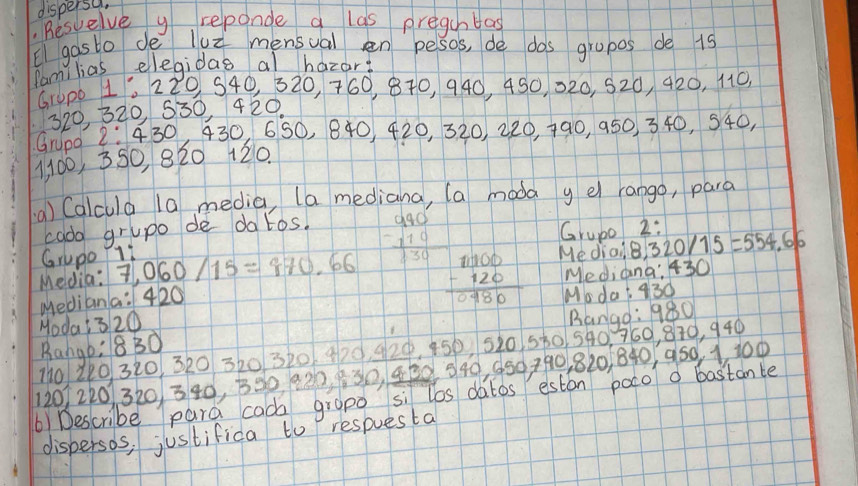 dispersa.
. Resuelve y reponde a las preguntas
El gasto de luz mensual en pesos, de dos grupos de 15
familias elegidas al hazar:
Grupo 1: 220, 540, 320, 760, 870, 940, 450, 320, 520, 420, 110,
320, 320, 530, 420.
Grupo 2: 430 430, 650, 840, 420, 320, 220, 790, 950, 340, 540,
1,100, 350, 820 120.
a) Calcula la media, la mediana, la moda y el rango, para
cada grupo de datos.
Grupo 1:
Media: 7,060/15 = 470.66
Mediana: 420
Moda: 320
Rango: 830
940
- 110
830
1100
- 120
0980
Grupo 2:
Media: 8,320/15 = 554.66
Mediana: 430
Moda: 430
Rango: 980
110, 220, 320, 320, 320, 320, 420, 420, 450, 520, 530, 540, 760, 870, 940
120, 220, 320, 340, 350, 420, 430, 430, 540, 650, 790, 820, 840, 950, 1,100
b) Describe para cada grupo si los datos estan poco o bastante
dispersos, justifica tu respuesta